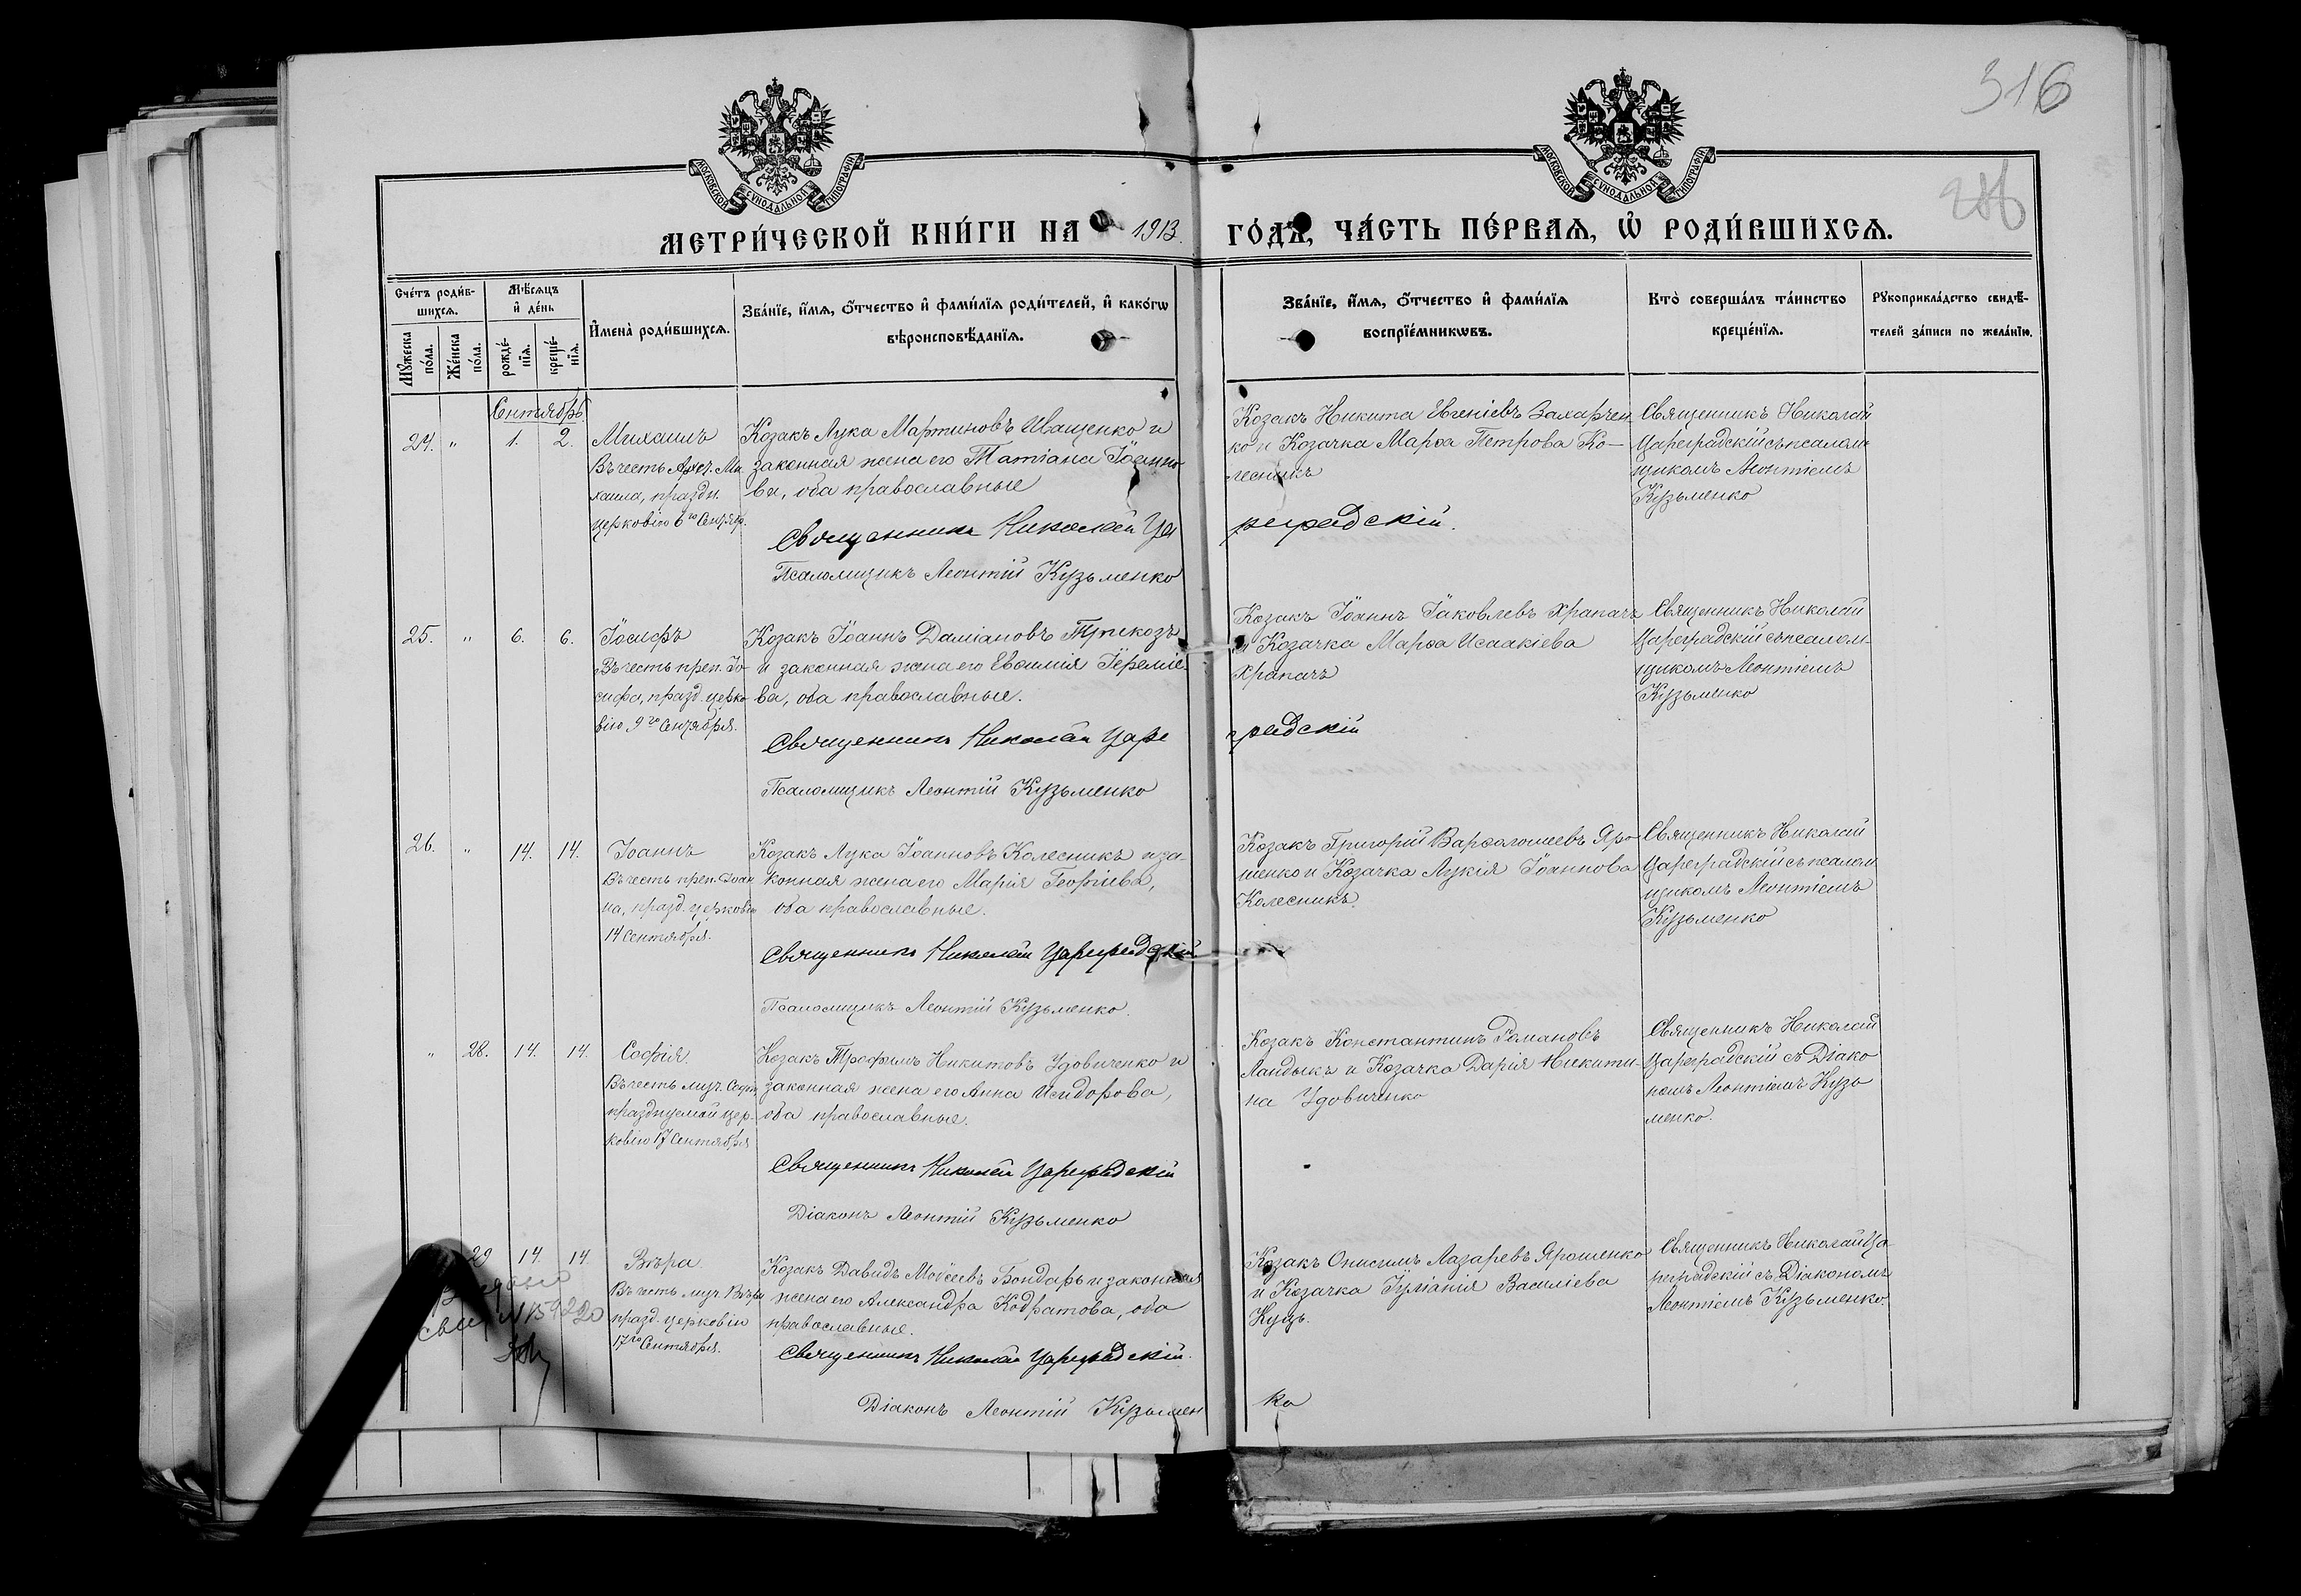 316
МОСКОВСКОЙ СУНОДАЛЬНОЙ ТИПОГРАФІИ
МОСКОВСКОЙ СУНОДАЛЬНОЙ ТИПОГРАФІИ
МЕТРИ́ЧЕСКОЙ КНИ́ГИ НА 1913. ГО́ДЪ, ЧА́СТЬ ПЕ́РВАѦ, Ѡ҆ РОДИ́ВШИХСѦ.
Сче́тъ роди́в-
шихсѧ.
Мѣ́сѧцъ
и҆ де́нь
Мꙋ́жеска
по́ла.
Же́нска
по́ла.
рожде́-
нїѧ.
креще́-
нїѧ.
И҆мена̀ роди́вшихсѧ.
Зва́нїе, и҆́мѧ, ѻ҆́тчество и҆ фами́лїѧ роди́телей, и҆ како́гѡ
вѣроисповѣ́данїѧ.
Зва́нїе, и҆́мѧ, ѻ҆́тчество и҆ фами́лїѧ
воспрїе́мникѡвъ.
Кто̀ соверша́лъ та́инство
креще́нїѧ.
Рꙋкоприкла́дство свидѣ́-
телей за́писи по жела́нїю.
Сентябрь
24. " 1. 2.
Михаилъ
Въ честь Арх. Ми
хаила, праздн.
церковію 6го Сентяб.
Козакъ Лука Мартиновъ Иващенко и
законная жена его Татіана Іоанно
ва, оба православные
Священникъ Николай Ца
реградскій.
Псаломщикъ Леонтій Кузьменко
Козакъ Никита Евгеніевъ Захарчен
ко и Козачка Марѳа Петрова Ко-
лесникъ
Священникъ Николай
Цареградскій съ псалом
щикомъ Леонтіемъ
Кузьменко
25. " 6. 6.
Іосифъ
Въ честь преп. Іо-
сифа, празд. церко
вію 9го Сентября.
Козакъ Іоаннъ Даміановъ Трикозъ
и законная жена его Евѳимія Іереміе
ва, оба православные.
Священникъ Николай Царе
градскій
Псаломщикъ Леонтій Кузьменко
Козакъ Іоаннъ Іаковлевъ Храпачъ
и Козачка Марѳа Исаакіева
Храпачъ
Священникъ Николай
Цареградскій съ псалом-
щикомъ Леонтіемъ
Кузьменко
26. " 14. 14.
Іоаннъ
Въ честь преп. Іоан
на, празд. церковію
14 Сентября.
Козакъ Лука Іоанновъ Колесникъ и за-
конная жена его Марія Георгіева,
оба православные.
Священникъ Николай Цареградскій
Псаломщикъ Леонтій Кузьменко.
Козакъ Григорій Варѳоломеевъ Яро
шенко и Козачка Лукія Іоаннова
Колесникъ.
Священникъ Николай
Цареградскій съ псалом
щикомъ Леонтіемъ
Кузьменко
" 28. 14. 14.
Софія
Въ честь муч. Софіи
празднуемой цер-
ковію 17 Сентября
Козакъ Трофимъ Никитовъ Удовиченко и
законная жена его Анна Исидорова,
оба православные.
Священникъ Николай Цареградскій
Діаконъ Леонтій Кузьменко
Козакъ Константинъ Романовъ
Ландыкъ и Козачка Дарія Никити-
на Удовиченко
Священникъ Николай
Цареградскій съ Діако
номъ Леонтіемъ Кузь
менко.
29 14. 14.
Вѣра.
Въ честь муч. Вѣры
празд. церковію
17го Сентября.
Козакъ Давидъ Моисеевъ Бондарь и законная
жена его Александра Кодратова, оба
православные.
Священникъ Николай Цареградскій.
Діаконъ Леонтій Кузьмен
ко
Козакъ Онисимъ Лазаревъ Ярошенко
и Козачка Іуліанія Василіева
Куцъ.
Священникъ Николай Ца-
реградскій съ Діакономъ
Леонтіемъ Кузьменко.